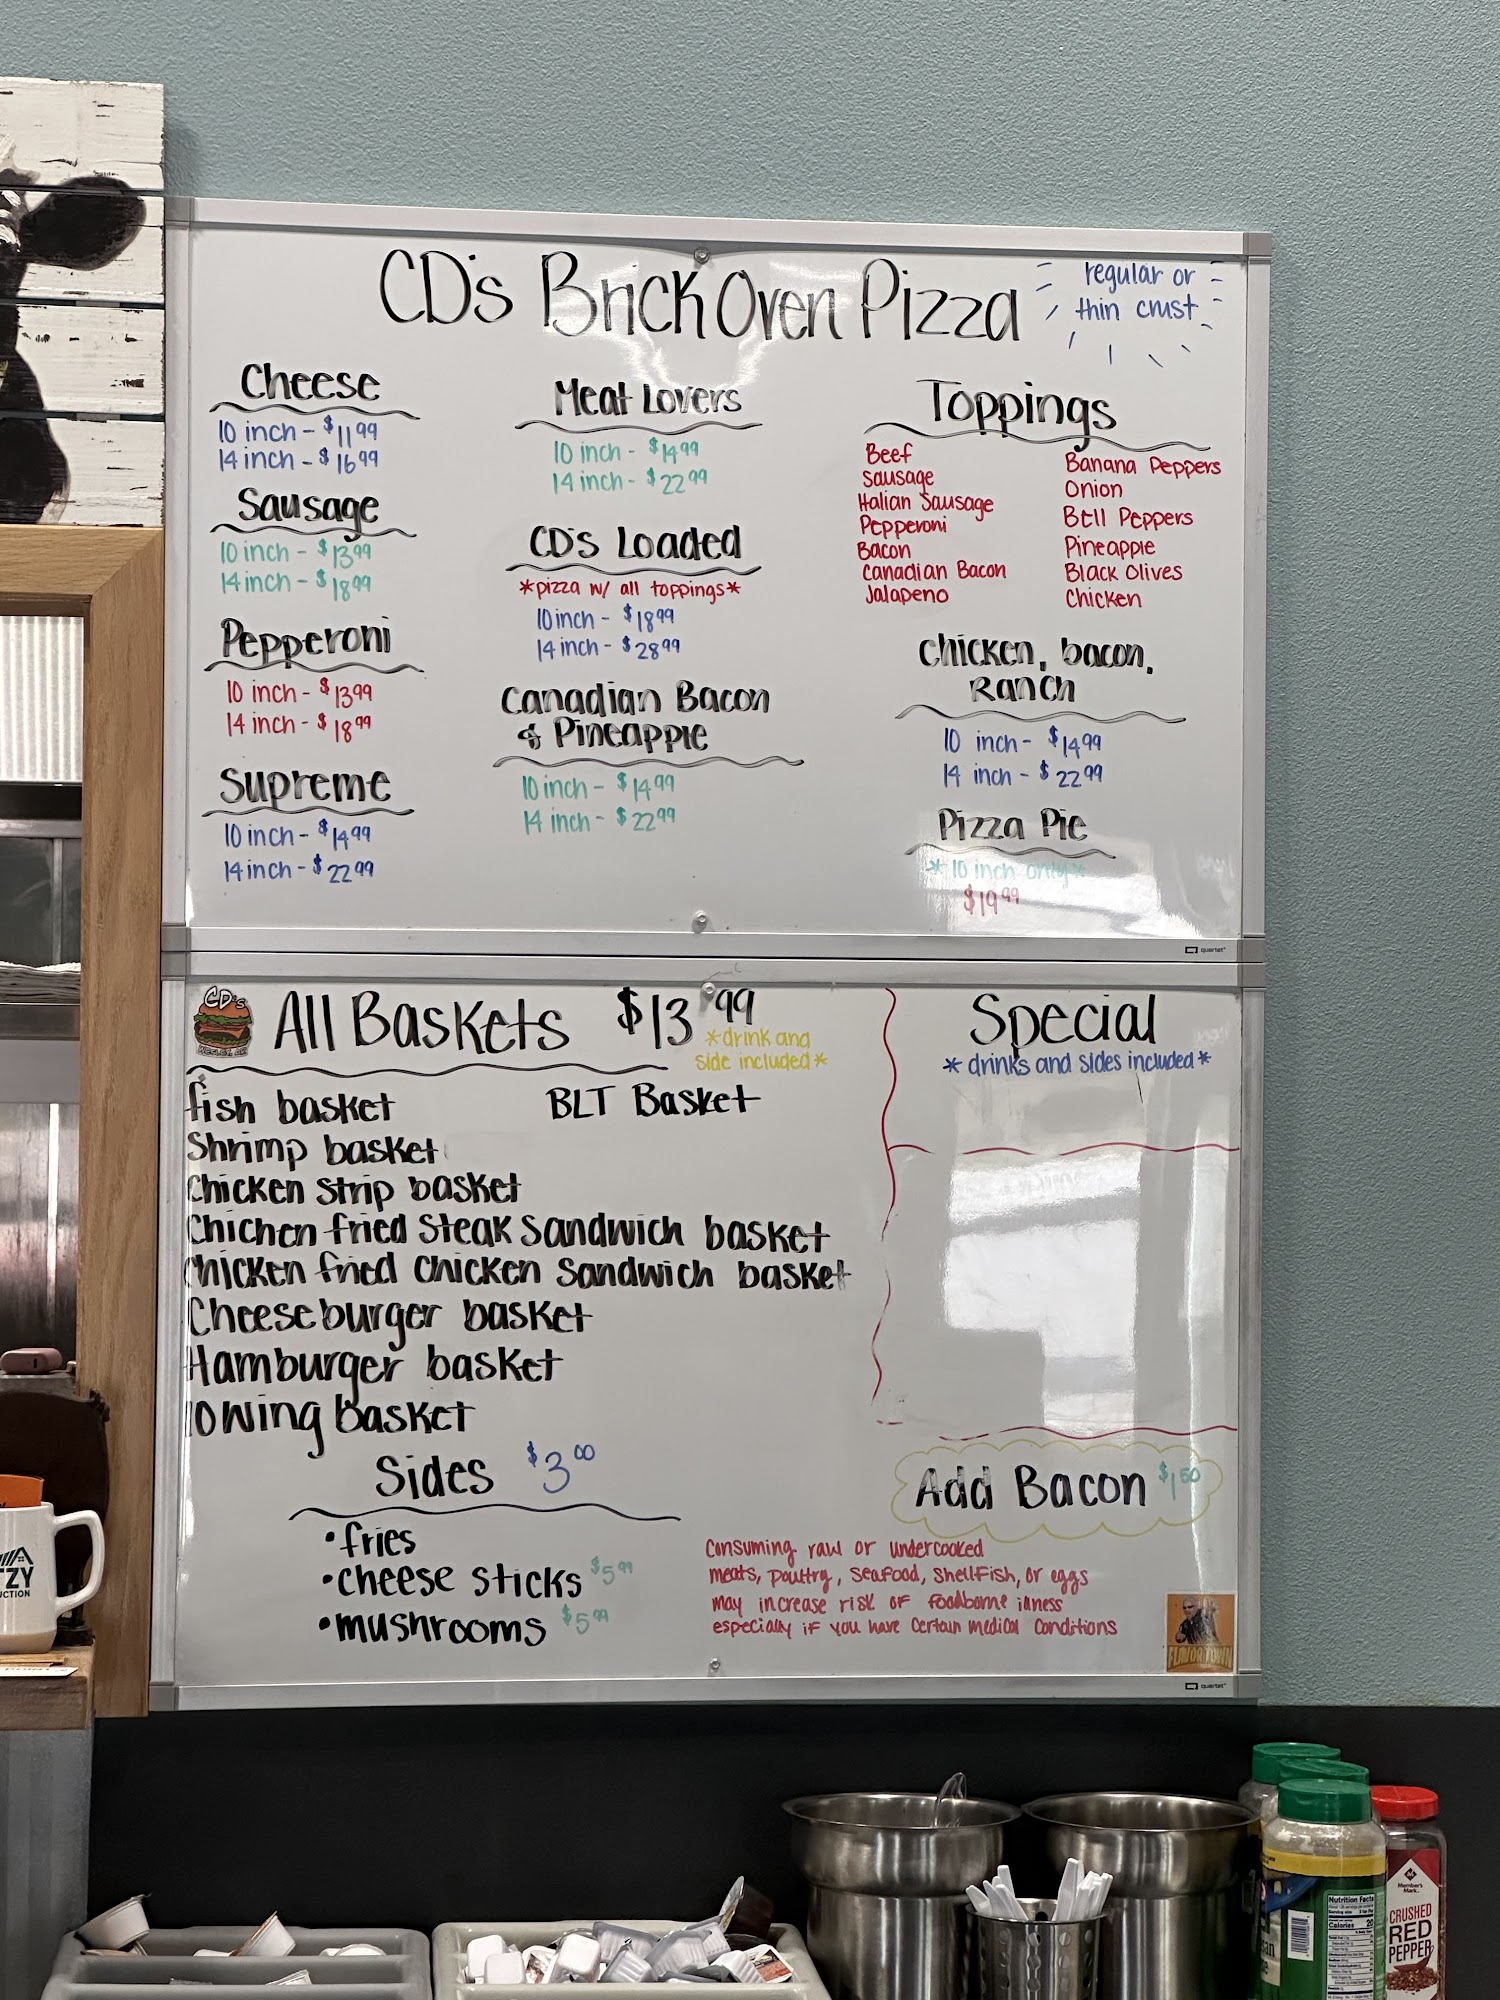 CD's Brick Oven Pizza
regular or
thin crust
Cheese
10 inch - $11.99
14 inch - $16.99
Sausage
10 inch - $13.99
14 inch - $18.99
Pepperoni
10 inch - $13.99
14 inch - $18.99
Supreme
10 inch - $14.99
14 inch - $22.99
Meat Lovers
10 inch - $14.99
14 inch - $22.99
CD's Loaded
*pizza w/ all toppings*
10 inch - $18.99
14 inch - $28.99
Canadian Bacon
& Pineapple
10 inch - $14.99
14 inch - $22.99
Toppings
Beef
Sausage
Italian Sausage
Pepperoni
Bacon
Canadian Bacon
Jalapeno
Banana Peppers
Onion
Bell Peppers
Pineapple
Black Olives
Chicken
Chicken, bacon,
Ranch
10 inch - $14.99
14 inch - $22.99
Pizza Pie
*10 inch only*
$19.99
quartet
CD's
All Baskets $13.99
*drink and
side included*
fish basket
BLT Basket
Shrimp basket
Chicken strip basket
Chichen fried steak sandwich basket
Chicken fried chicken sandwich basket
Cheeseburger basket
Hamburger basket
10 wing basket
Special
*drinks and sides included*
Sides $3.00
•fries
•cheese sticks $5.99
•mushrooms $5.99
Add Bacon $1.50
Consuming raw or undercooked
meats, poultry, seafood, shellfish, or eggs
may increase risk of foodborne illness
especially if you have certain medical conditions
FLAVOR TOWN
quartet
TZY
UCTION
Nutrition Facts
Calories
Member's
Mark
CRUSHED
RED
PEPPER